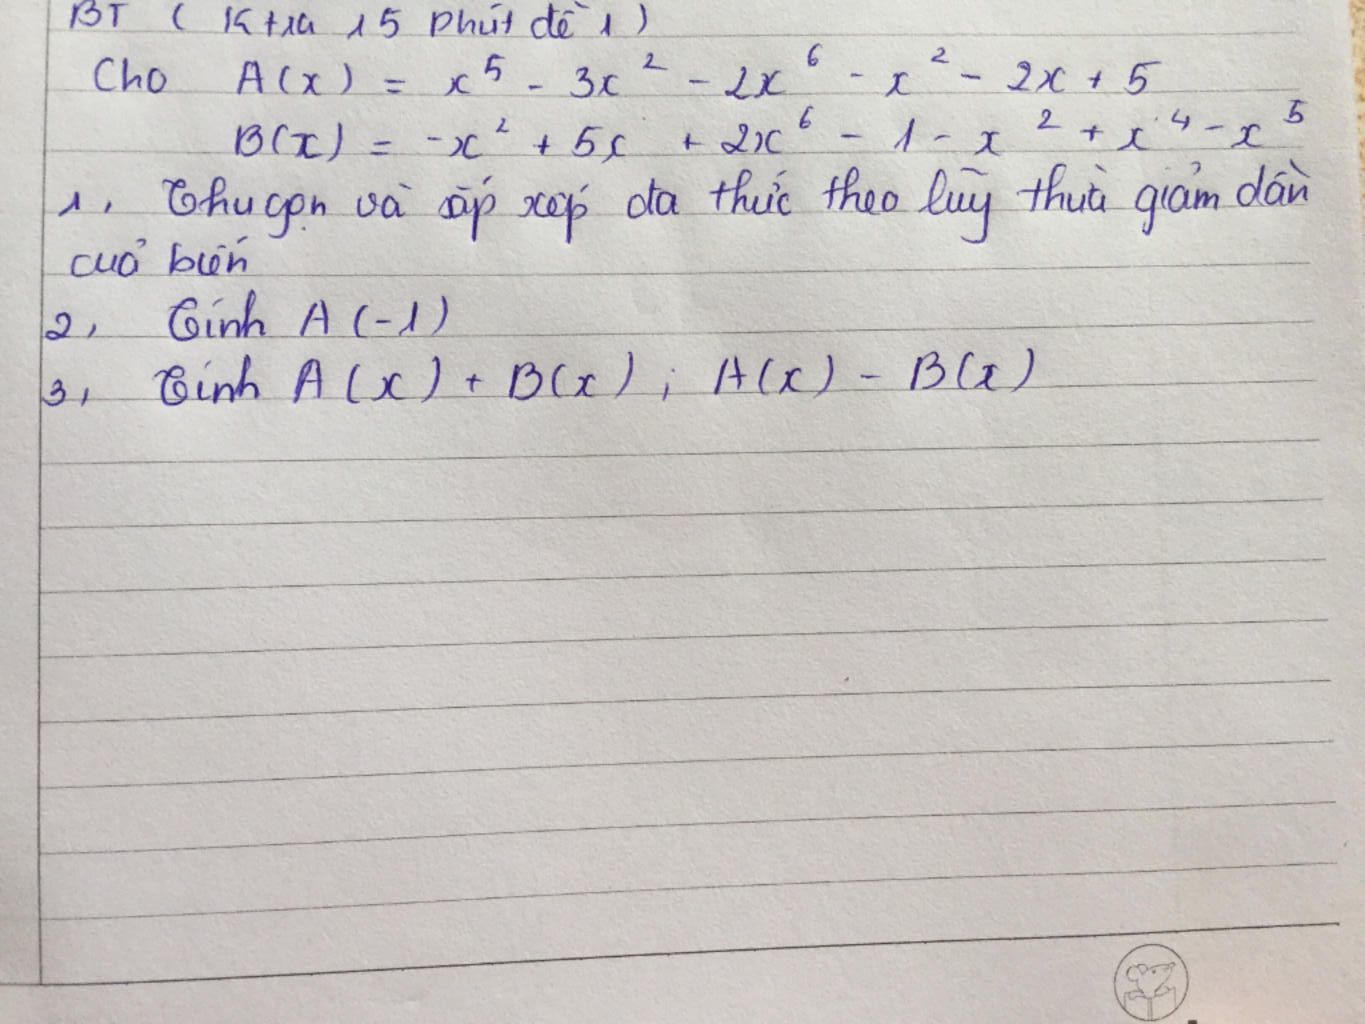 BT ( Ktra 15 phút đề 1 )
Cho A(x) = x⁵ - 3x² - 2x⁶ - x² - 2x + 5
B(x) = -x² + 5x + 2x⁶ - 1 - x² + x⁴ - x⁵
1, Thu gọn và sắp xếp đa thức theo lũy thừa giảm dần
của biến
2, Tính A(-1)
3, Tính A(x) + B(x) ; A(x) - B(x)